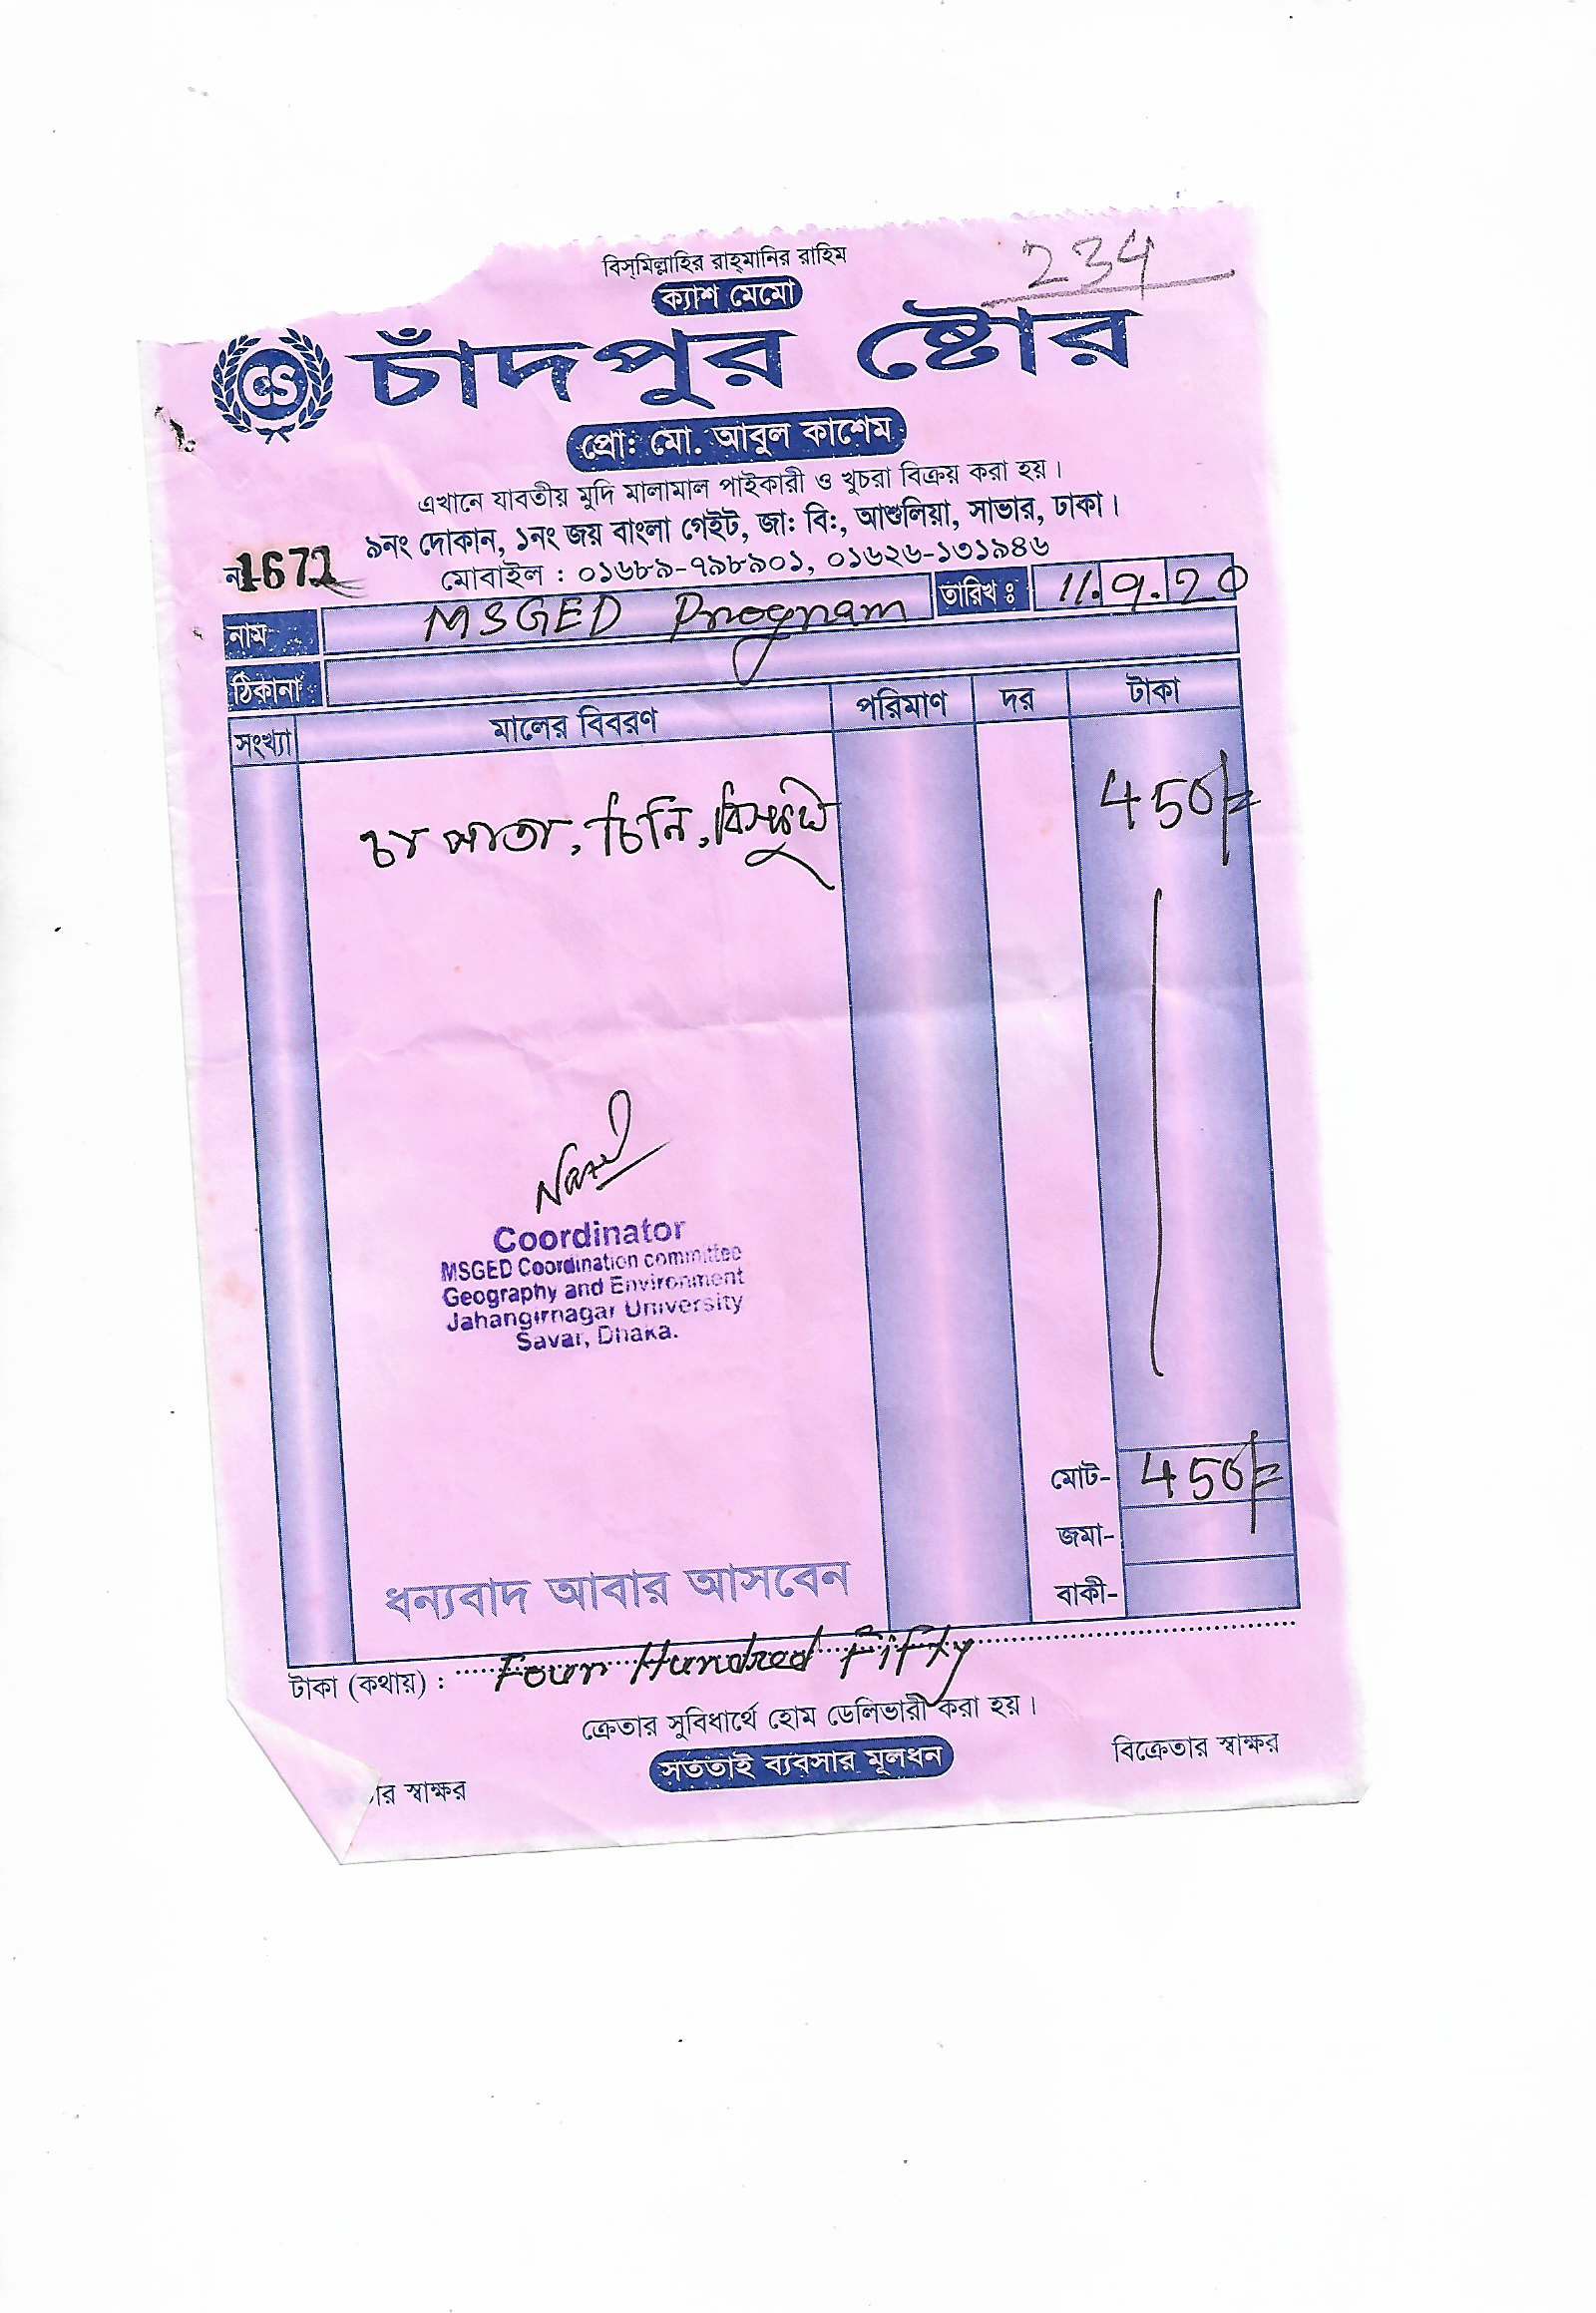 বিস্‌মিল্লাহির রাহ্‌মানির রাহিম
234
ক্যাশ মেমো
CS চাঁদপুর ষ্টোর
প্রো: মো. আবুল কাশেম
এখানে যাবতীয় মুদি মালামাল পাইকারী ও খুচরা বিক্রয় করা হয়।
৯নং দোকান, ১নং জয় বাংলা গেইট, জা: বি:, আশুলিয়া, সাভার, ঢাকা।
মোবাইল : ০১৬৮৯-৭৯৮৯০১, ০১৬২৬-১৩১৯৪৬
1672
নাম MSGED Program তারিখ ঃ 11.9.20
ঠিকানা :
সংখ্যা মালের বিবরণ পরিমাণ দর টাকা
চা পাতা, চিনি, বিস্কুট 450/=
Coordinator
MSGED Coordination committee
Geography and Environment
Jahangirnagar University
Savar, Dhaka.
মোট- 450/=
জমা-
বাকী-
ধন্যবাদ আবার আসবেন
টাকা (কথায়) : Four Hundred Fifty
ক্রেতার সুবিধার্থে হোম ডেলিভারী করা হয়।
সততাই ব্যবসার মূলধন
বিক্রেতার স্বাক্ষর
স্বাক্ষর